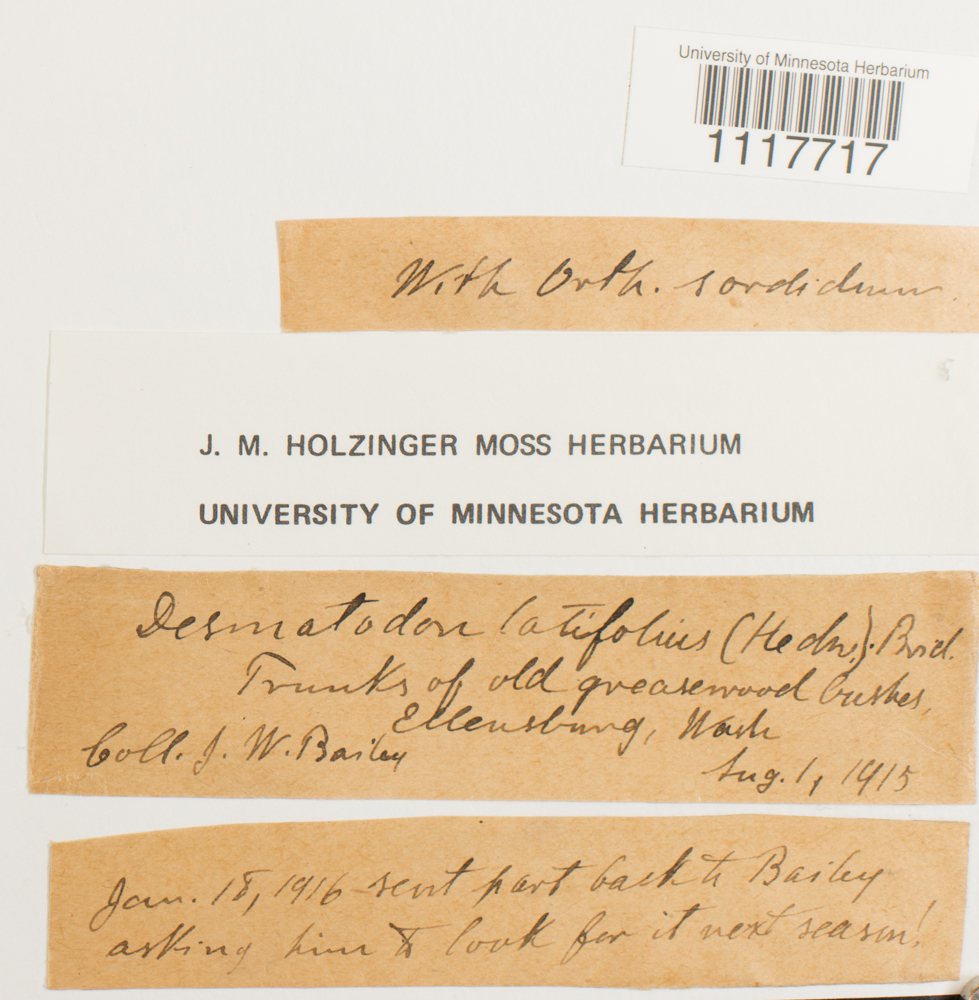 University of Minnesota Herbarium
1117717
With Orth. sordidum.
J. M. HOLZINGER MOSS HERBARIUM
UNIVERSITY OF MINNESOTA HERBARIUM
Desmatodon latifolius (Hedw.). Brid.
Trunks of old greasewood bushes,
Ellensburg, Wash
Coll. J. W. Bailey
Aug. 1, 1915
Jan. 18, 1916 sent part back to Bailey
asking him to look for it next season!